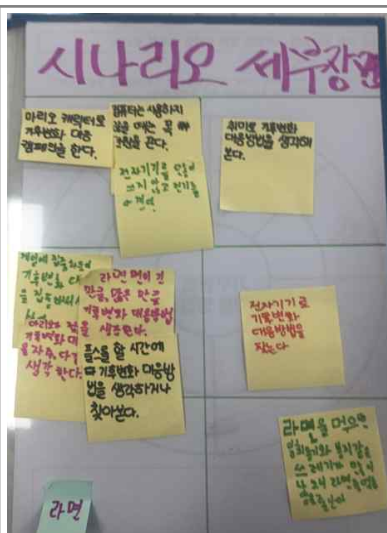 시나리오 세부장면
마리오 캐릭터로
기후변화 대응
캠페인을 한다.
컴퓨터는 사용하지
않을 때는 꼭
전원을 끈다.
전자기기를 많이
쓰지 않고 전기를
취미로 기후변화
대응방법을 생각해
본다.
게임에 집중하듯이
기후변화
을 집중
라면 면이 긴
만큼, 많은 만큼
기후변화 대응방법
을 생각한다.
기후변화
을 자주
생각한다.
할 시간에
기후변화 대응방
법을 생각하거나
찾아본다.
전자기기로
기후변화
대응방법을
찾는다
라면을 먹으면
봉지같은
쓰레기가 많이
라면